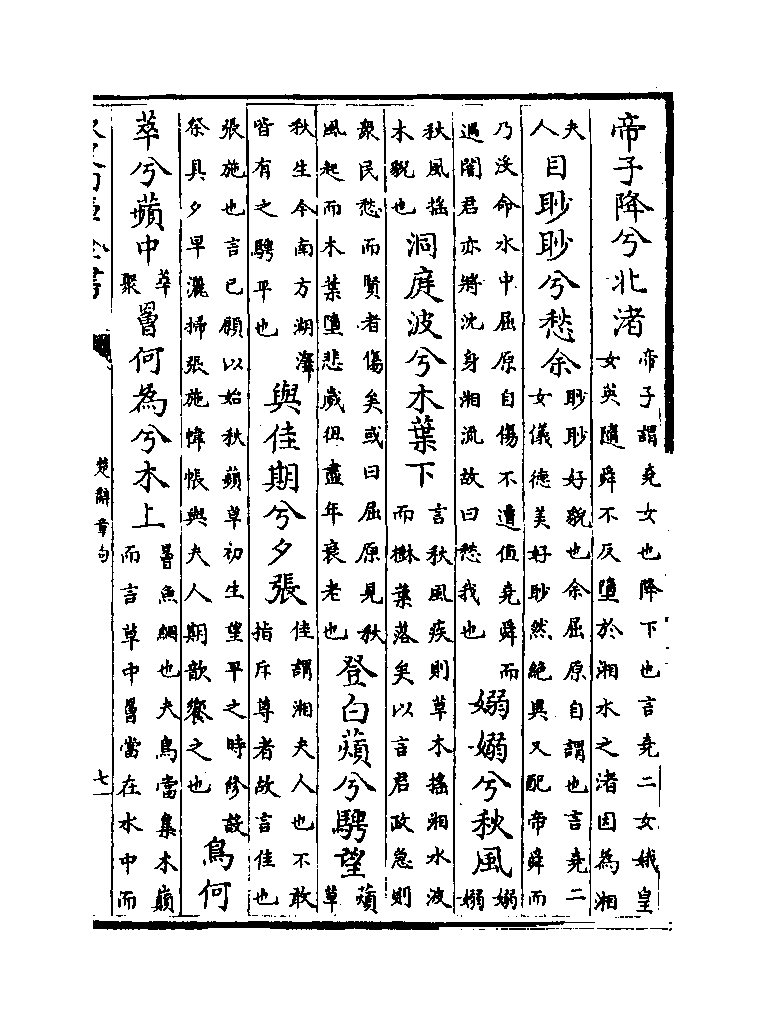 帝子降兮北渚帝子謂堯女也降下也言堯二女娥皇女英隨舜不反墮於湘水之渚因為湘
夫人目眇眇兮愁余眇眇好貌也余屈原自謂也言堯二女儀德美好眇然絶異又配帝舜而
乃沒命水中屈原自傷不遭值堯舜而遇闇君亦將沈身湘流故曰愁我也嫋嫋兮秋風嫋嫋
秋風搖木貌也洞庭波兮木葉下言秋風疾則草木搖湘水波而樹葉落矣以言君政急則
衆民愁而賢者傷矣或曰屈原見秋風起而木葉墮悲歲徂盡年衰老也登白蘋兮騁望蘋草
秋生今南方湖澤皆有之騁平也與佳期兮夕張佳謂湘夫人也不敢指斥尊者故言佳也
張施也言已願以始秋蘋草初生望平之時修設祭具夕早灑掃張施幃帳與夫人期歆饗之也鳥何
萃兮蘋中萃聚罾何為兮木上罾魚網也夫鳥當集木巔而言草中罾當在水中而
楚辭章句
七